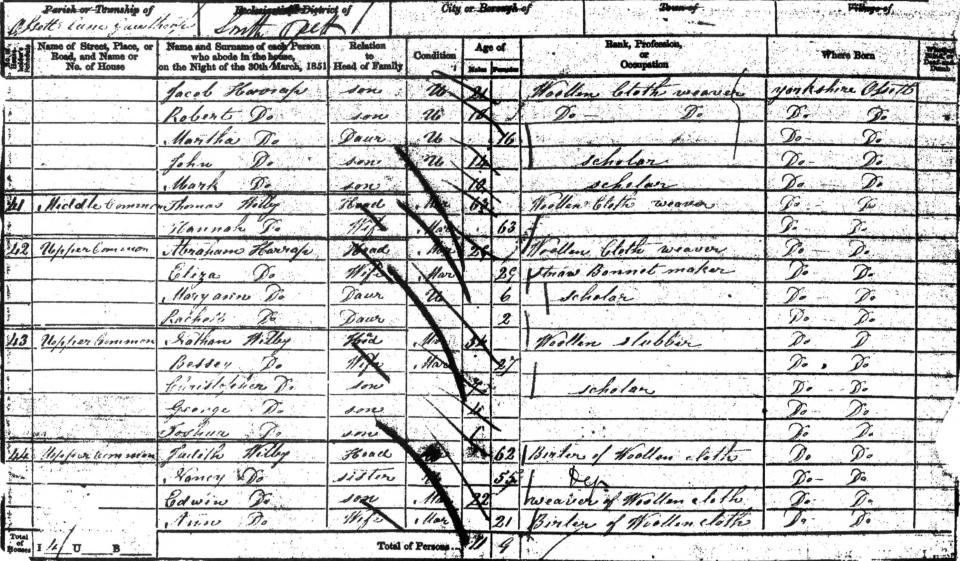 Parish or Township of Ecclesiastical District of City or Borough of Town of Village of
Lane South
Name of Street, Place, or Road, and Name or No. of House
Name and Surname of each Person who abode in the house, on the Night of the 30th March, 1851
Relation to Head of Family
Condition
Age of
Males Females
Rank, Profession, or Occupation
Where Born
Whether Blind, or Deaf-and-Dumb
Jacob Harrap son U 21 Woollen Cloth weaver Yorkshire Ossett
Robert Do son U Do Do Do Do
Martha Do Daur U 16 Do Do
John Do son U 14 scholar Do Do
Mark Do son 10 scholar Do Do
41 Middle Common Thomas Wilby Head Mar 63 Woollen Cloth weaver Do Do
Hannah Do Wife Mar 63 Do Do
42 Upper Common Abraham Harrap Head Mar Woollen Cloth weaver Do Do
Eliza Do Wife Mar 29 straw Bonnet maker Do Do
Mary ann Do Daur U 6 scholar Do Do
Rachel Do Daur 2 Do Do
43 Upper Common Nathan Wilby Head Mar 34 Woollen slubber Do D
Bessey Do Wife Mar 27 Do Do
Christopher Do son scholar Do Do
George Do son 4 Do Do
Joshua Do son Do Do
44 Upper Common Judith Wilby Head 62 Burler of Woollen cloth Do Do
Nancy Do sister 55 Do Do
Edwin Do son Mar 22 weaver of Woollen cloth Do Do
Ann Do Wife Mar 21 Burler of Woollen cloth Do Do
Total of Houses I 4 U B Total of Persons 11 9